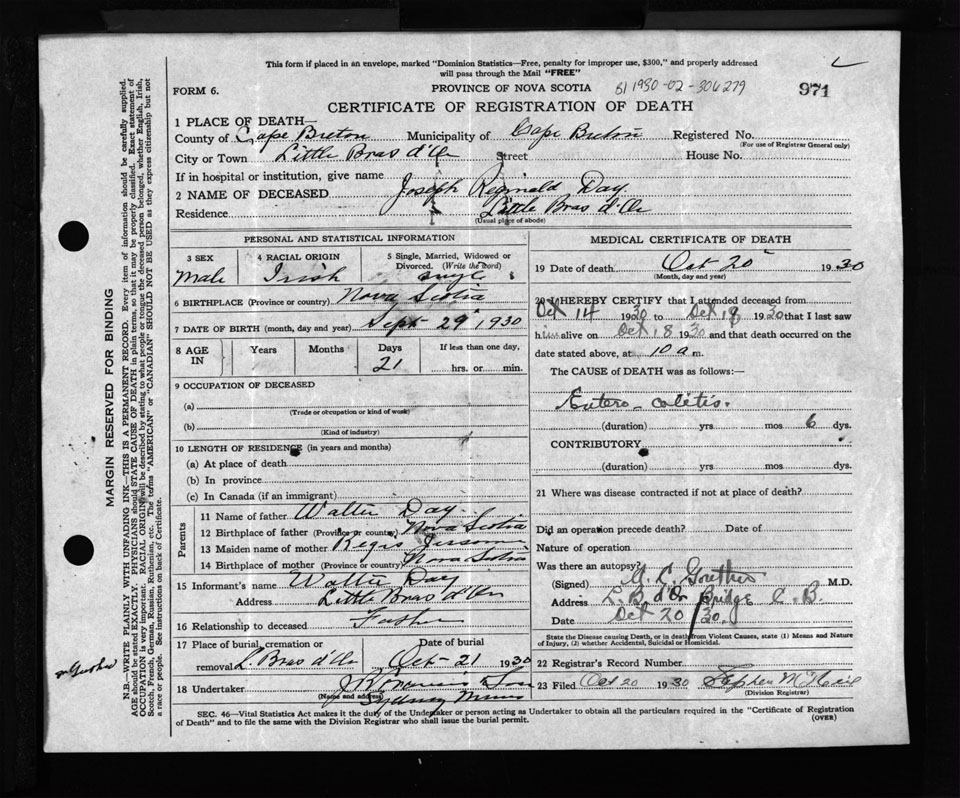 This form if placed in an envelope, marked "Dominion Statistics—Free, penalty for improper use, $300," and properly addressed
will pass through the Mail "FREE"
FORM 6.
PROVINCE OF NOVA SCOTIA
61 1930-02-306279
971
CERTIFICATE OF REGISTRATION OF DEATH
1 PLACE OF DEATH—
County of Cape Breton Municipality of Cape Breton Registered No.
(For use of Registrar General only)
City or Town Little Bras d'Or Street House No.
If in hospital or institution, give name
2 NAME OF DECEASED Joseph Reginald Day
Residence Little Bras d'Or
(Usual place of abode)
PERSONAL AND STATISTICAL INFORMATION
3 SEX 4 RACIAL ORIGIN 5 Single, Married, Widowed or
Divorced. (Write the word)
Male Irish single
6 BIRTHPLACE (Province or country) Nova Scotia
7 DATE OF BIRTH (month, day and year) Sept 29 1930
8 AGE IN Years Months Days If less than one day,
21 hrs. or min.
9 OCCUPATION OF DECEASED
(a)
(Trade or occupation or kind of work)
(b)
(Kind of industry)
10 LENGTH OF RESIDENCE (in years and months)
(a) At place of death
(b) In province
(c) In Canada (if an immigrant)
Parents
11 Name of father Walter Day
12 Birthplace of father (Province or country) Nova Scotia
13 Maiden name of mother
14 Birthplace of mother (Province or country) Nova Scotia
15 Informant's name Walter Day
Address Little Bras d'Or
16 Relationship to deceased Father
17 Place of burial, cremation or Date of burial
removal L. Bras d'Or Oct 21 1930
18 Undertaker Son
(Name and address) Sydney Mines
MEDICAL CERTIFICATE OF DEATH
19 Date of death Oct 20 1930
(Month, day and year)
20 I HEREBY CERTIFY that I attended deceased from
Oct 14 1930 to Oct 18 1930 that I last saw
him alive on Oct 18 1930 and that death occurred on the
date stated above, at 10 a m.
The CAUSE of DEATH was as follows:—
Entero-colitis.
(duration) yrs mos 6 dys.
CONTRIBUTORY
(duration) yrs mos dys.
21 Where was disease contracted if not at place of death?
Did an operation precede death? Date of
Nature of operation
Was there an autopsy?
(Signed) M.D.
Address L. B d'Or Bridge C. B.
Date Oct 20 / 30.
State the Disease causing Death, or in death from Violent Causes, state (1) Means and Nature
of Injury, (2) whether Accidental, Suicidal or Homicidal.
22 Registrar's Record Number
23 Filed Oct 20 1930 Stephen McNeil
(Division Registrar)
SEC. 46—Vital Statistics Act makes it the duty of the Undertaker or person acting as Undertaker to obtain all the particulars required in the "Certificate of Registration
of Death" and to file the same with the Division Registrar who shall issue the burial permit.
(OVER)
MARGIN RESERVED FOR BINDING
N.B.—WRITE PLAINLY WITH UNFADING INK—THIS IS A PERMANENT RECORD. Every item of information should be carefully supplied.
AGE should be stated EXACTLY. PHYSICIANS should STATE CAUSE OF DEATH in plain terms, so that it may be properly classified. Exact statement of
OCCUPATION is very important. RACIAL ORIGIN will be described by stating to what people or tongue the deceased person belonged, whether English, Irish,
Scotch, French, German, Russian, Ruthenian, etc. The terms "AMERICAN" or "CANADIAN" SHOULD NOT BE USED as they express citizenship but not
a race or people. See instructions on back of Certificate.